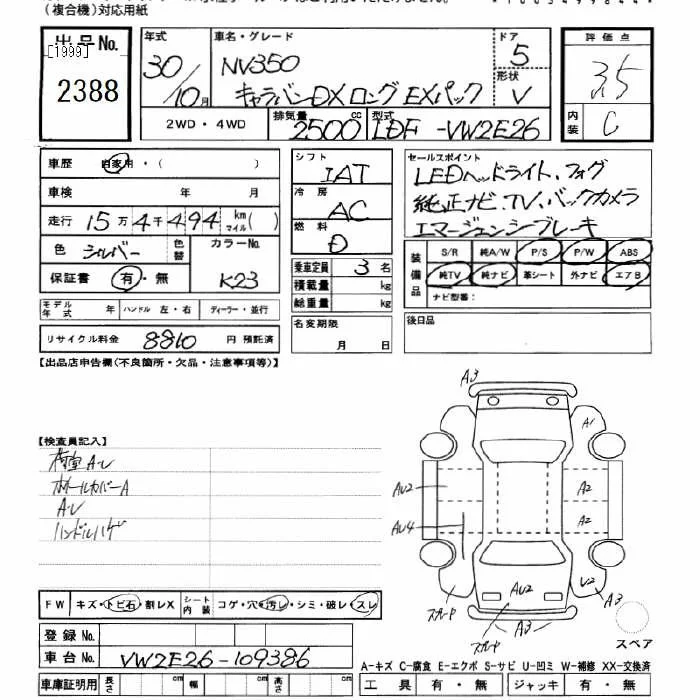 (複合機)対応用紙
出品No.
[1999]
2388
年式
30/10月
車名・グレード
NV350
キャラバンDXロング EXパック
ドア
5
形状
V
2WD・4WD
排気量
2500cc
型式
LDF-VW2E26
評価点
3.5
内装
C
車歴 自家用・( )
車検 年 月
走行 15万4千494 km マイル( )
色 シルバー 色替 カラーNo. K23
保証書 有・無
モデル年式 年 ハンドル 左・右 ディーラー・並行
リサイクル料金 8810 円 預託済
シフト
IAT
冷房
AC
燃料
D
乗車定員 3名
積載量 kg
総重量 kg
名変期限
月 日
セールスポイント
LEDヘッドライト、フォグ
純正ナビ、TV、バックカメラ
エマージェンシーブレーキ
装備品
S/R 純A/W P/S P/W ABS
純TV 純ナビ 革シート 外ナビ エアB
ナビ型番:
後日品
【出品店申告欄(不良箇所・欠品・注意事項等)】
【検査員記入】
荷室AU
ホイールカバーA
AU
ハンドルハゲ
A3
A1
AU2
A2
AU4
A2
スプレード
AU2
U2
A3
A3
スプレード
スペア
FW キズ・トビ石・割レX シート内装 コゲ・穴・汚レ・シミ・破レ・スレ
登録No.
車台No. VW2E26-109386
車庫証明用 長さ cm 幅 cm 高さ cm
A-キズ C-腐食 E-エクボ S-サビ U-凹ミ W-補修 XX-交換済
工具 有・無 ジャッキ 有・無